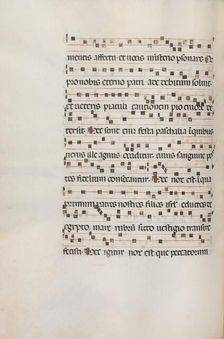 mentis affectu et uocis misterio psonare. Q
pro nobis eterno patri ade debitum soluit
et ueteris piaculi cautionem pio cruore de
tersit. Hec sunt enim festa paschalia in quibus
uerus ille agnus occiditur cuius sanguine po
stes fidelium consecrantur. Hec nox est in qua
primum patres nostros filios isrl eductos de
egypto mare rubrum sicco uestigio transire
fecisti. Hec igitur nox est que peccatorum